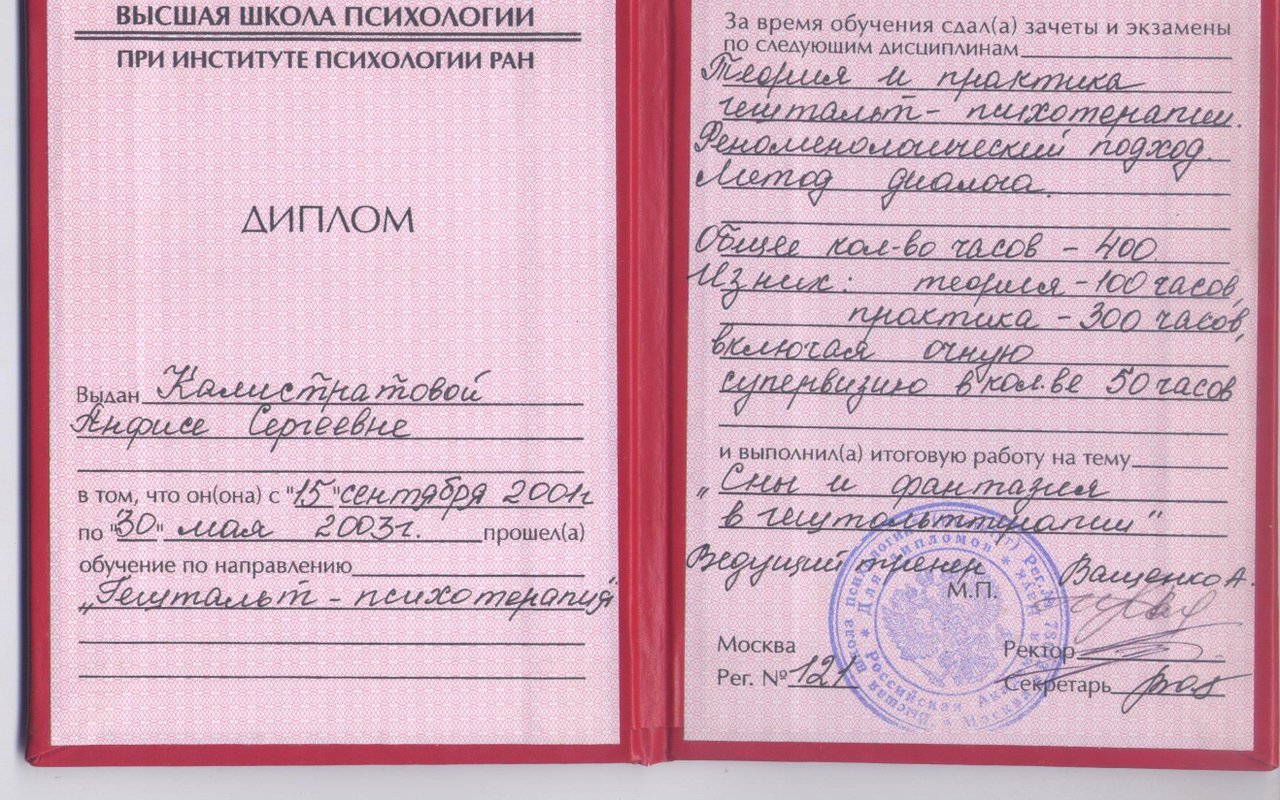 ВЫСШАЯ ШКОЛА ПСИХОЛОГИИ
ПРИ ИНСТИТУТЕ ПСИХОЛОГИИ РАН
ДИПЛОМ
Выдан Калистратовой
Анфисе Сергеевне
в том, что он(она) с "15" сентября 2001г
по "30" мая 2003г. прошел(а)
обучение по направлению
„Гештальт - психотерапия"
За время обучения сдал(а) зачеты и экзамены
по следующим дисциплинам
Теория и практика
гештальт - психотерапии.
Феноменологический подход.
Метод диалога.
Общее кол-во часов - 400.
Из них: теория - 100 часов,
практика - 300 часов,
включая очную
супервизию в кол.ве 50 часов
и выполнил(а) итоговую работу на тему
„Сны и фантазия
в гештальттерапии"
Ведущий тренер Ващенко А.
М.П.
Москва
Ректор
Рег. № 121
Секретарь
Для дипломов
Российская
Москва